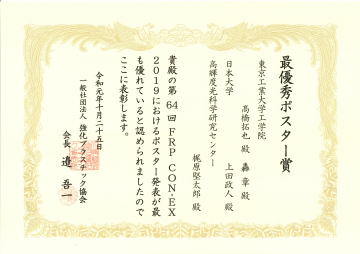 最優秀ポスター賞
東京工業大学工学院
高橋拓也 殿 轟 章 殿
日本大学
上田政人 殿
高輝度光科学研究センター
梶原堅太郎 殿
貴殿の第 64 回 FRP CON-EX
2019におけるポスター発表が最
も優れていると認められましたので
ここに表彰します。
令和元年十月二十五日
一般社団法人 強化プラスチック協会
会長 邉 吾一